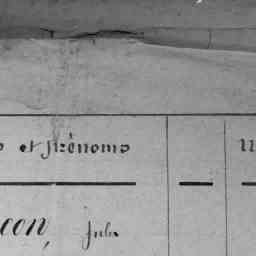 et prénoms
con, Jules